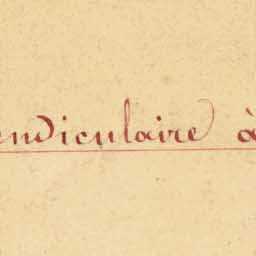 endiculaire à